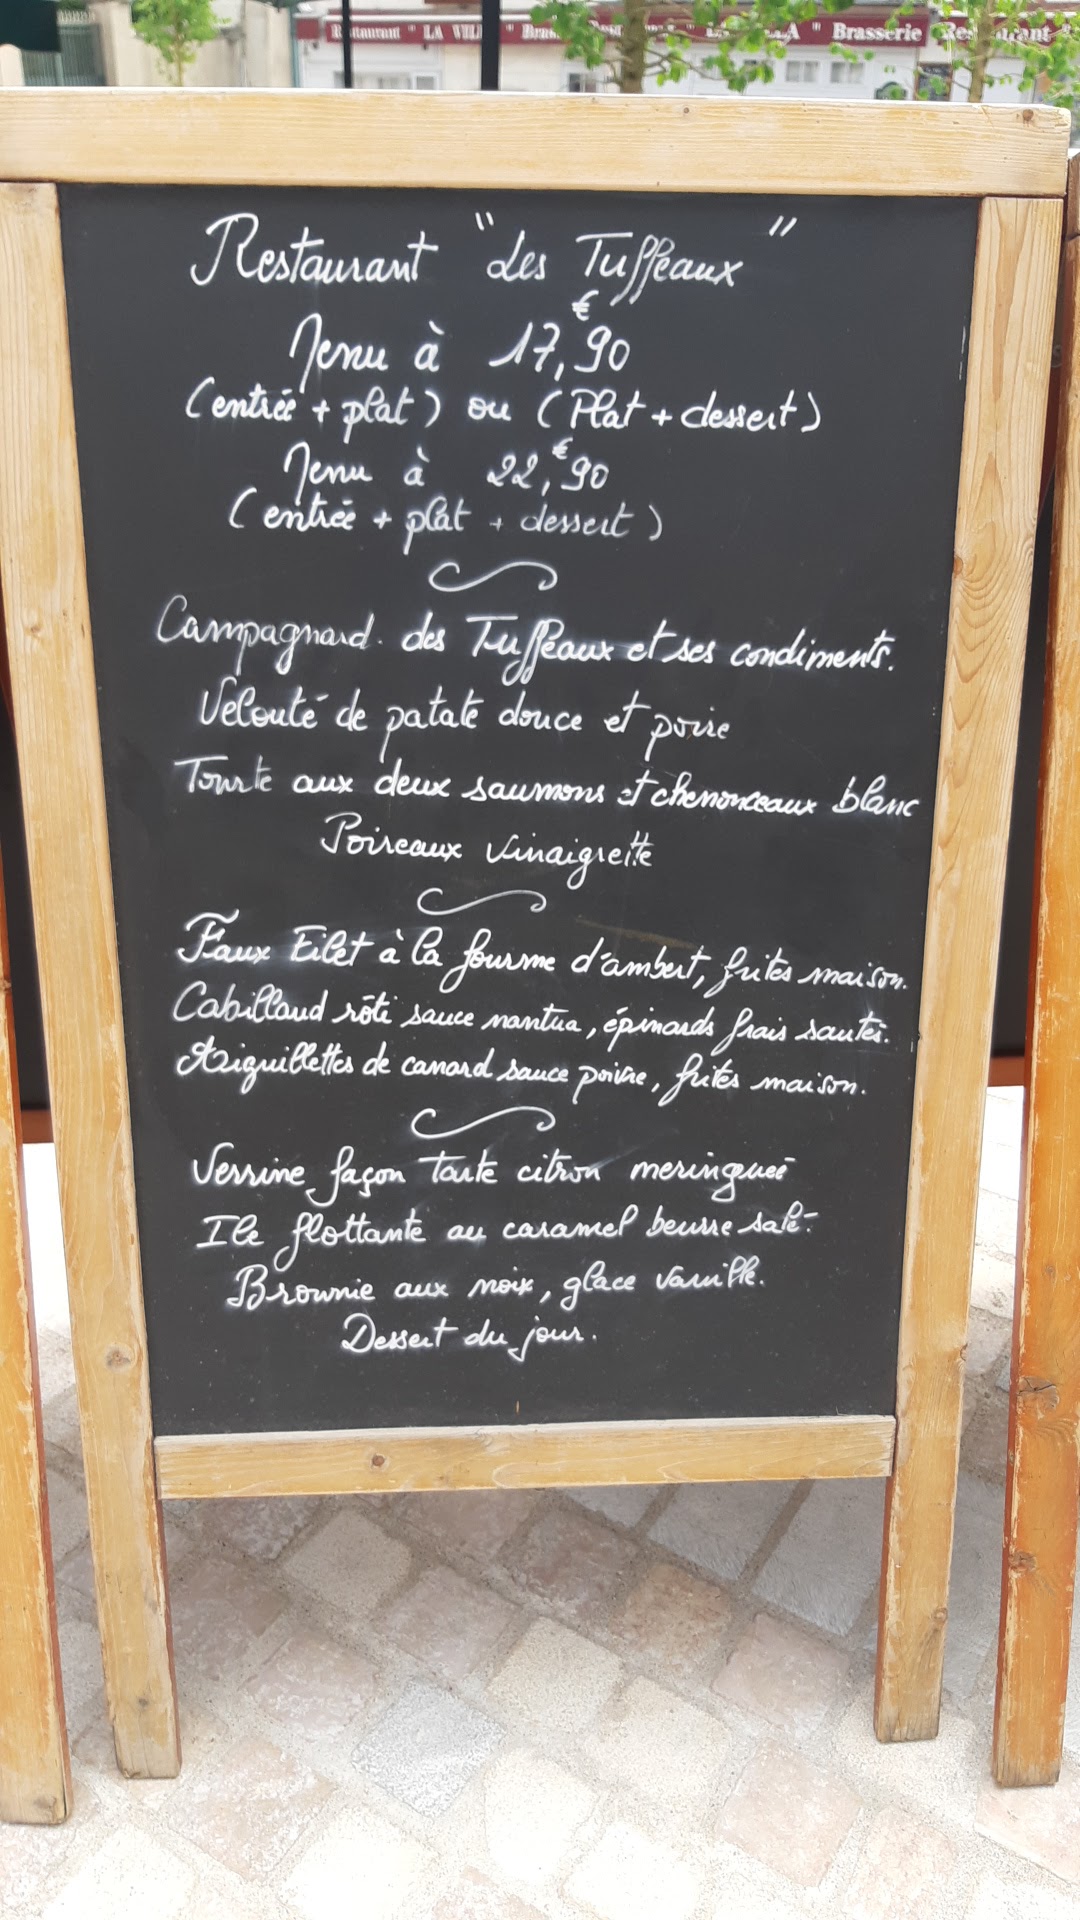 Restaurant " LA VILLA " Brasserie Restaurant "
Restaurant "des Tuffeaux"
Menu à 17,€90
(entrée + plat) ou (Plat + dessert)
Menu à 22,€90
(entrée + plat + dessert)
Campagnard des Tuffeaux et ses condiments.
Velouté de patate douce et poire
Tourte aux deux saumons et chenonceaux blanc
Poireaux vinaigrette
Faux Filet à la fourme d'ambert, frites maison.
Cabillaud rôti sauce nantua, épinards frais sautés.
Aiguillettes de canard sauce poivre, frites maison.
Verrine façon tarte citron meringueé
Ile flottante au caramel beurre salé.
Brownie aux noix, glace vanille.
Dessert du jour.